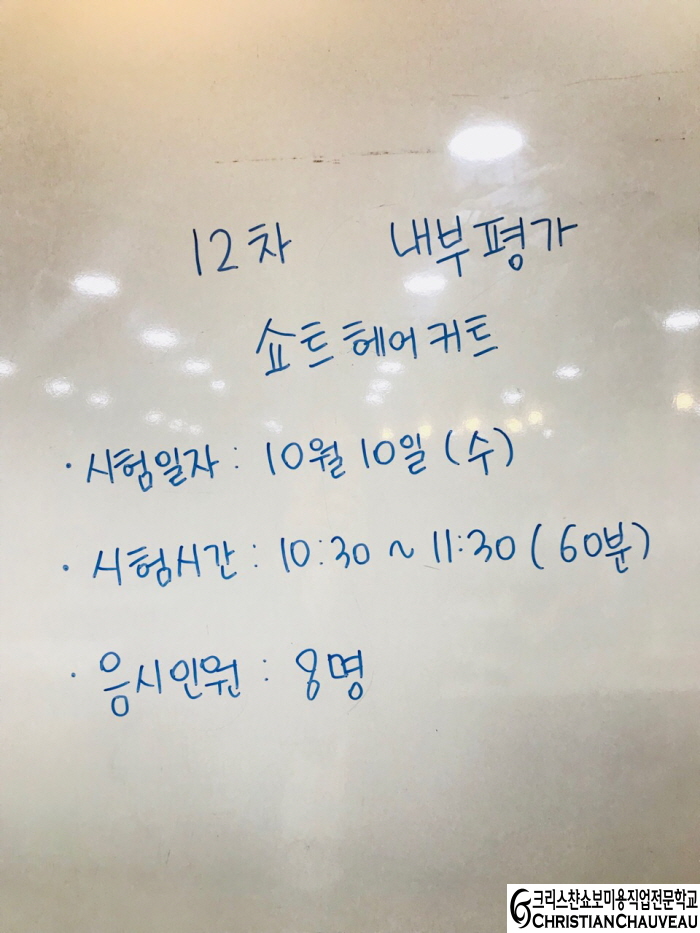 12차 내부평가
쇼트헤어커트
· 시험일자 : 10월 10일 (수)
· 시험시간 : 10:30 ~ 11:30 ( 60분)
· 응시인원 : 8명
크리스챤쇼보미용직업전문학교
CHRISTIAN CHAUVEAU